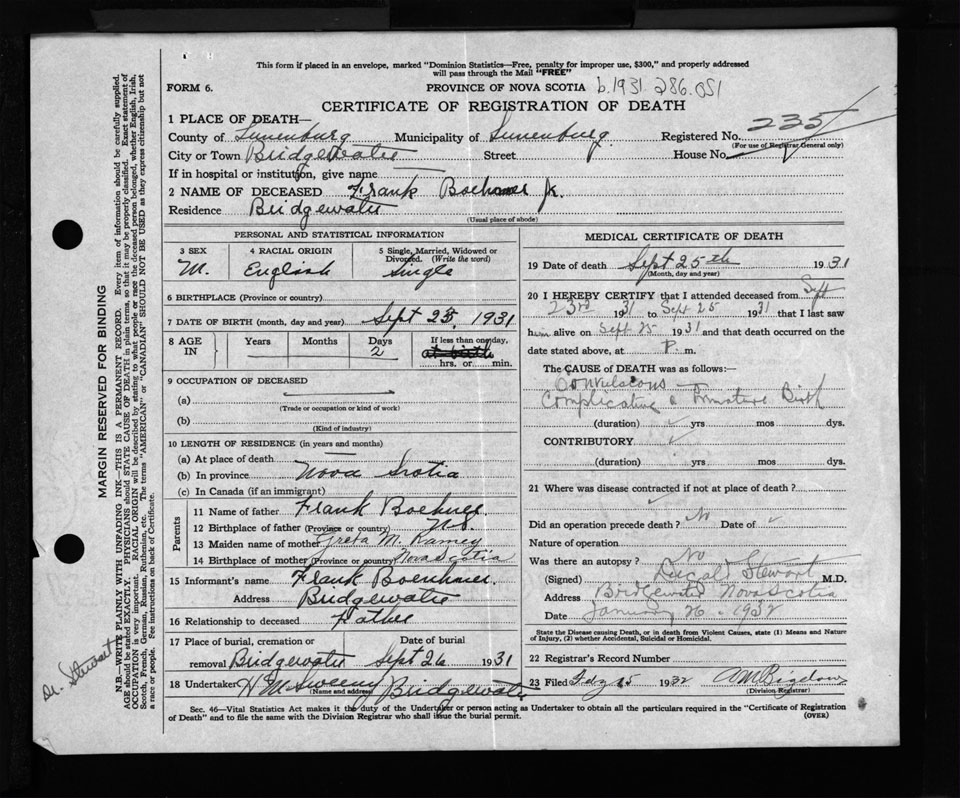 This form if placed in an envelope, marked "Dominion Statistics—Free, penalty for improper use, $300," and properly addressed
will pass through the Mail "FREE"
FORM 6.
PROVINCE OF NOVA SCOTIA b.1931.286.051
CERTIFICATE OF REGISTRATION OF DEATH
1 PLACE OF DEATH—
County of Lunenburg Municipality of Lunenburg Registered No. 235
(For use of Registrar General only)
City or Town Bridgewater Street House No.
If in hospital or institution, give name
2 NAME OF DECEASED Frank Boehner Jr.
Residence Bridgewater
(Usual place of abode)
PERSONAL AND STATISTICAL INFORMATION
3 SEX
M.
4 RACIAL ORIGIN
English
5 Single, Married, Widowed or
Divorced. (Write the word)
Single
6 BIRTHPLACE (Province or country)
7 DATE OF BIRTH (month, day and year) Sept 23, 1931
8 AGE
IN
Years
Months
Days
2
If less than one day,
at birth
hrs. or min.
9 OCCUPATION OF DECEASED
(a)
(Trade or occupation or kind of work)
(b)
(Kind of industry)
10 LENGTH OF RESIDENCE (in years and months)
(a) At place of death
(b) In province Nova Scotia
(c) In Canada (if an immigrant)
Parents
11 Name of father Frank Boehner
12 Birthplace of father (Province or country) N.S.
13 Maiden name of mother Greta M. Ramey
14 Birthplace of mother (Province or country) Nova Scotia
15 Informant's name Frank Boenhner.
Address Bridgewater
16 Relationship to deceased Father
17 Place of burial, cremation or Date of burial
removal Bridgewater Sept 26 1931
18 Undertaker H McSweeny Bridgewater
(Name and address)
MEDICAL CERTIFICATE OF DEATH
19 Date of death Sept 25th 1931
(Month, day and year)
20 I HEREBY CERTIFY that I attended deceased from Sept
23rd 1931 to Sept 25 1931 that I last saw
him alive on Sept 25 1931 and that death occurred on the
date stated above, at P. m.
The CAUSE of DEATH was as follows:—
Convulsions
Complicating a Premature Birth
(duration) yrs mos dys.
CONTRIBUTORY
(duration) yrs. mos dys.
21 Where was disease contracted if not at place of death?
Did an operation precede death? No Date of
Nature of operation
Was there an autopsy? No
(Signed) Dugal Stewart M.D.
Address Bridgewater Nova Scotia
Date January 26 - 1932
State the Disease causing Death, or in death from Violent Causes, state (1) Means and Nature
of Injury, (2) whether Accidental, Suicidal or Homicidal.
22 Registrar's Record Number
23 Filed 15 1932 A M Bigelow
(Division Registrar)
Sec. 46—Vital Statistics Act makes it the duty of the Undertaker or person acting as Undertaker to obtain all the particulars required in the "Certificate of Registration
of Death" and to file the same with the Division Registrar who shall issue the burial permit.
(OVER)
MARGIN RESERVED FOR BINDING
N.B.—WRITE PLAINLY WITH UNFADING INK—THIS IS A PERMANENT RECORD. Every item of information should be carefully supplied.
AGE should be stated EXACTLY. PHYSICIANS should STATE CAUSE OF DEATH in plain terms, so that it may be properly classified. Exact statement of
OCCUPATION is very important. RACIAL ORIGIN will be described by stating to what people or race the deceased person belonged, whether English, Irish,
Scotch, French, German, Russian, Ruthenian, etc. The terms "AMERICAN" or "CANADIAN" SHOULD NOT BE USED as they express citizenship but not
a race or people. See instructions on back of Certificate.
Dr. Stewart